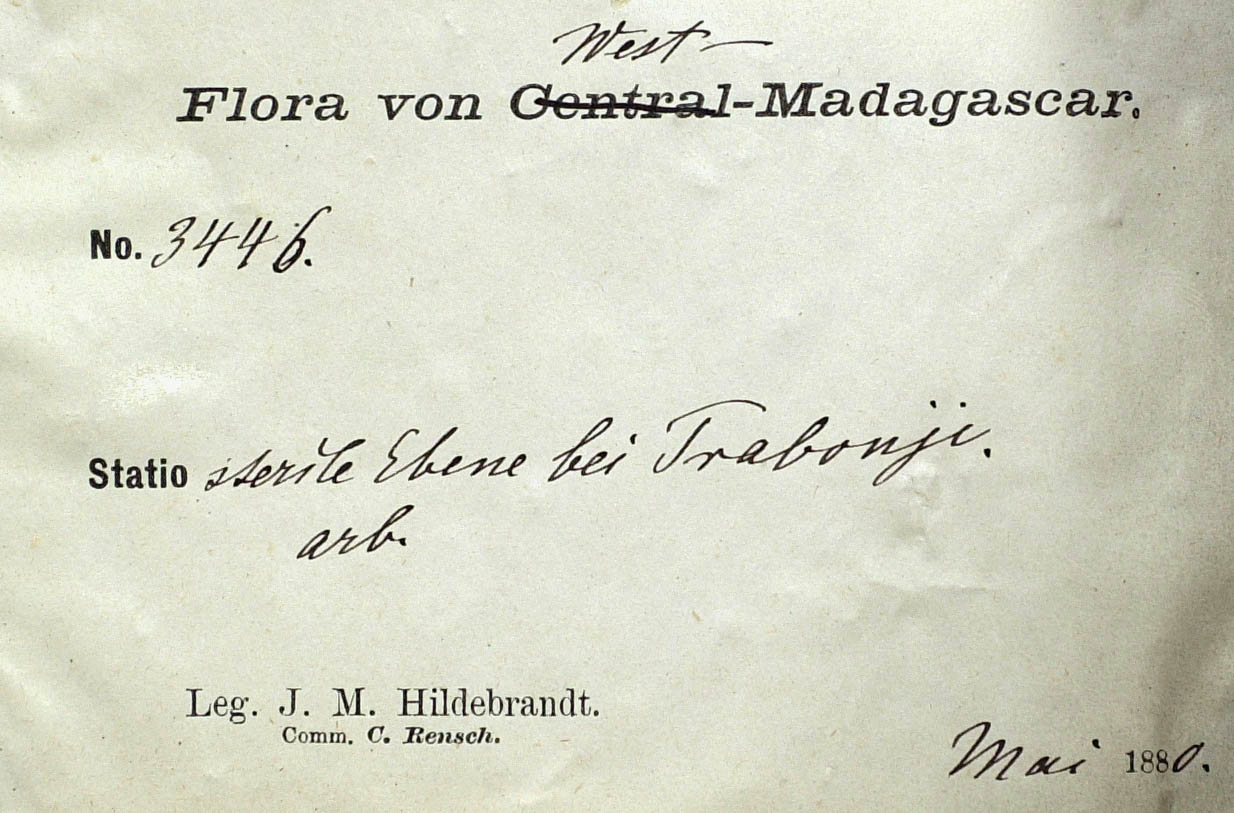 West-
Flora von Central-Madagascar.
No. 3446.
Statio sterile Ebene bei Trabonji.
arb.
Leg. J. M. Hildebrandt.
Comm. C. Rensch.
Mai 1880.